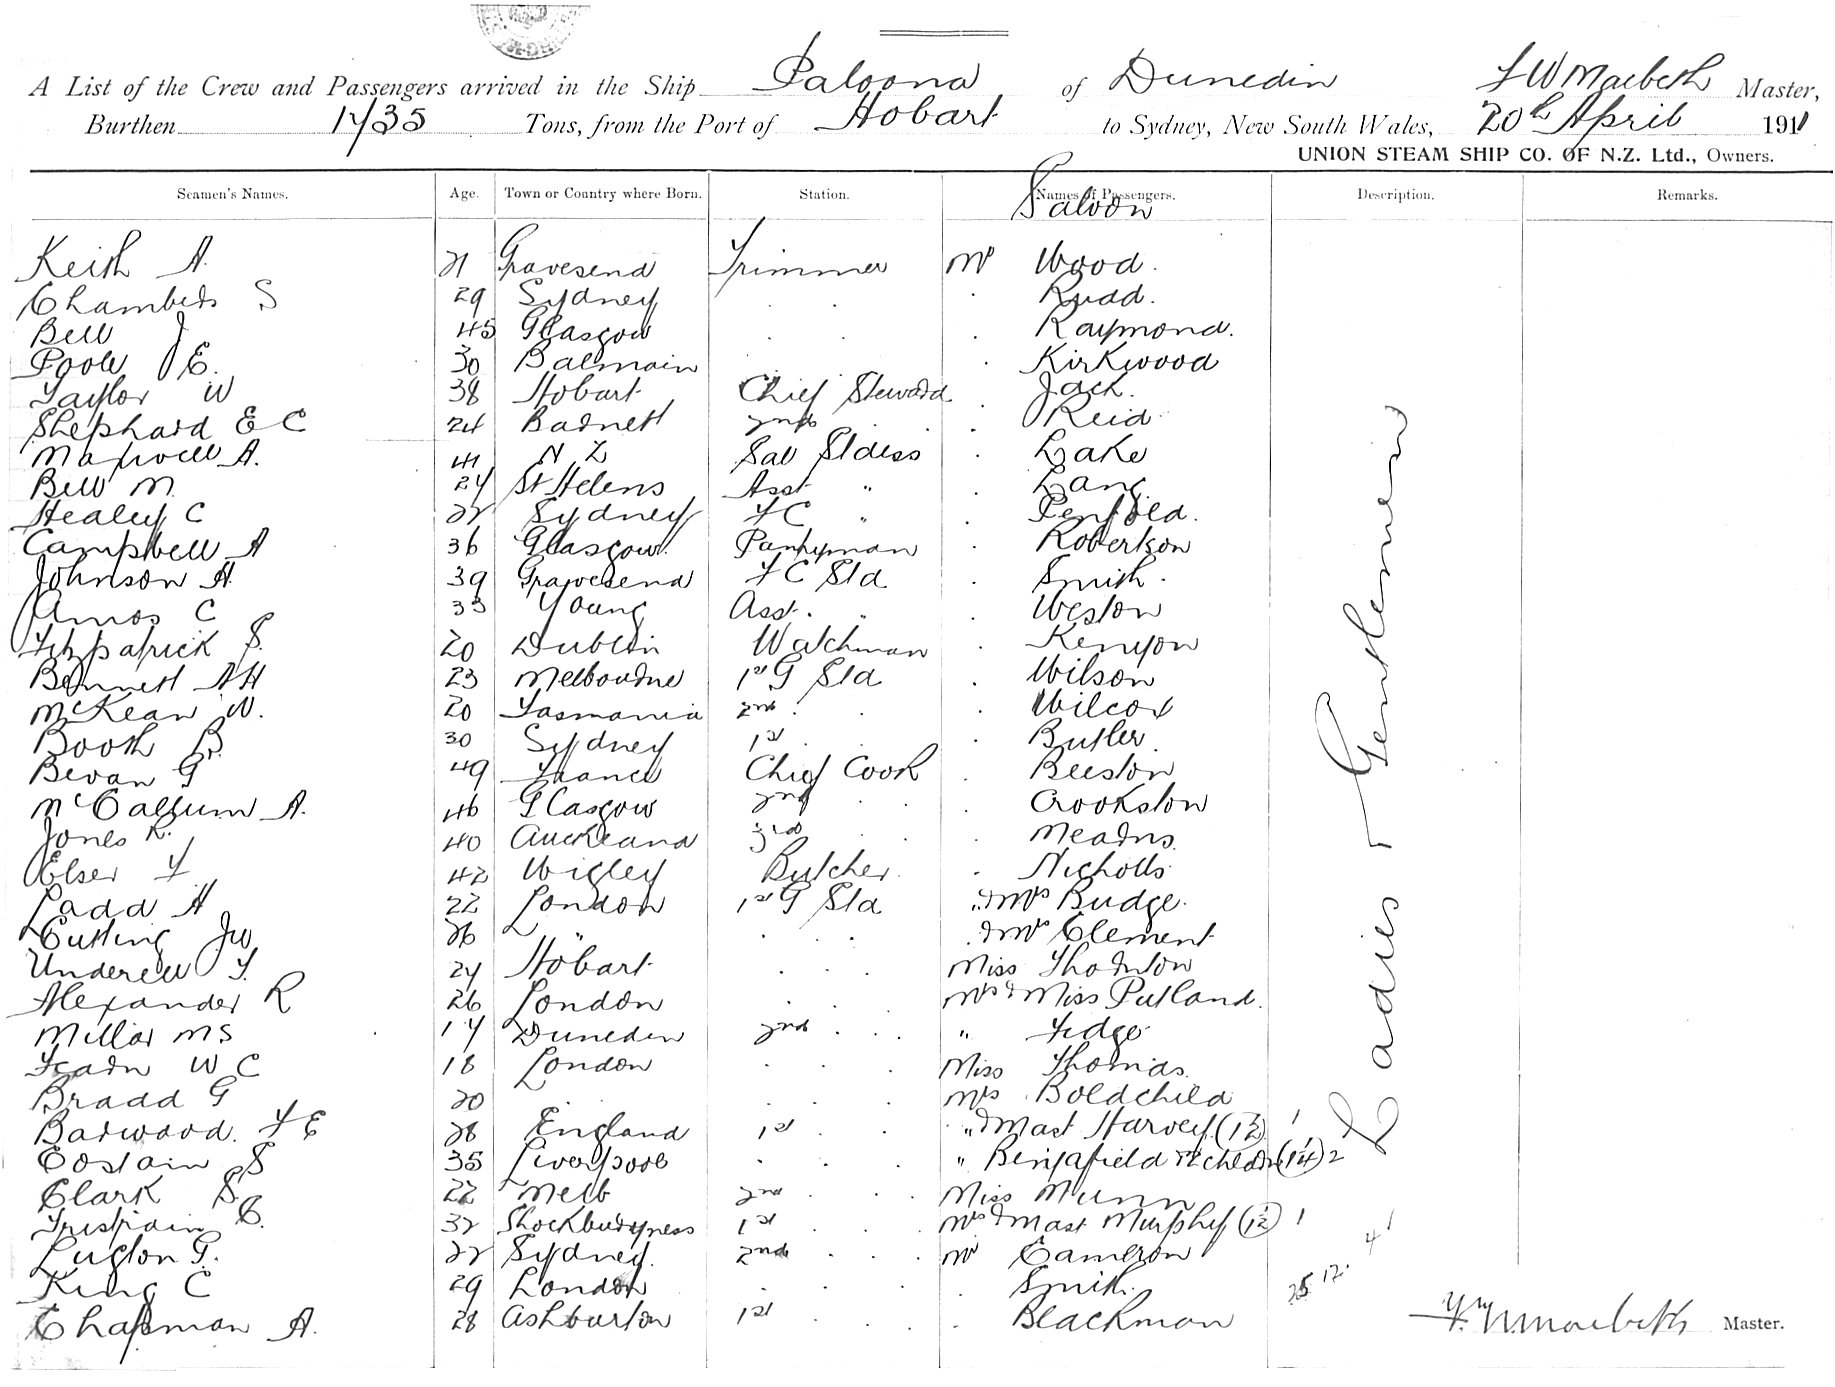 A List of the Crew and Passengers arrived in the Ship Paloona of Dunedin F W Macbeth Master,
Burthen 1735 Tons, from the Port of Hobart to Sydney, New South Wales, 20th April 1911
UNION STEAM SHIP CO. OF N.Z. Ltd., Owners.
Seamen's Names. Age. Town or Country where Born. Station. Names of Passengers. Description. Remarks.
Saloon
Keith A. 21 Gravesend Trimmer Mr Wood.
Chambers S 29 Sydney . . . Rudd.
Bell J 45 Glasgow . . . Raymond.
Poole E. 30 Balmain . . . Kirkwood
Taylor W 38 Hobart Chief Steward . Jack.
Shephard E C 24 Barnett 2nd . . . Reid
Maxwell A. 41 N Z Sal Stdess . Lake
Bell M. 27 St Helens Asst " . Lang
Healey C 22 Sydney F C " . Penfold.
Campbell A 36 Glasgow. Pantryman . Robertson
Johnson H. 39 Gravesend F C Std . Smith.
Amos C 33 Young Asst. " . Weston
Fitzpatrick S. 20 Dublin Watchman . Kenyon
Bennett A H 23 Melbourne 1st G Std . Wilson
McKean W. 20 Tasmania 2nd . . . Wilcox
Booth B. 30 Sydney 1st . . . Butler.
Bevan G 49 France Chief Cook . Beeston
McCallum A. 46 Glasgow 2nd . . . Crookston
Jones R. 40 Auckland 3rd . . . Mearns
Elser F 42 Wigley Butcher. . Nicholls
Ladd H 22 London 1st G Std " & Mrs Budge.
Cutting J W 26 " . . . & Mrs Clement
F. 24 Hobart . . . Miss Thornton
Alexander R 26 London . . . Mrs & Miss Putland.
Millar M S 17 Dunedin 2nd . . " Fidge
Fearn W C 18 London . . . Miss Thomas.
Bradd G 20 . . . . Mrs Boldchild
Barwood. F E 28 England 1st . . " & Mast Harvey (1½) 1
Costain S 35 Liverpool . . . " Bengafield & 2 children (1¼) 2
Clark S. 22 Melb 2nd . . . Miss Munn
C. 32 Shoeburyness 1st . . . Mrs & Mast Murphy (1½) 1
Lugton G. 22 Sydney. 2nd . . . Mr Cameron
King C 29 London . . . . Smith.
Chapman A. 28 Ashburton 1st . . . Blackman
Ladies & Gentlemen
25 12. 4
F. W. Macbeth Master.